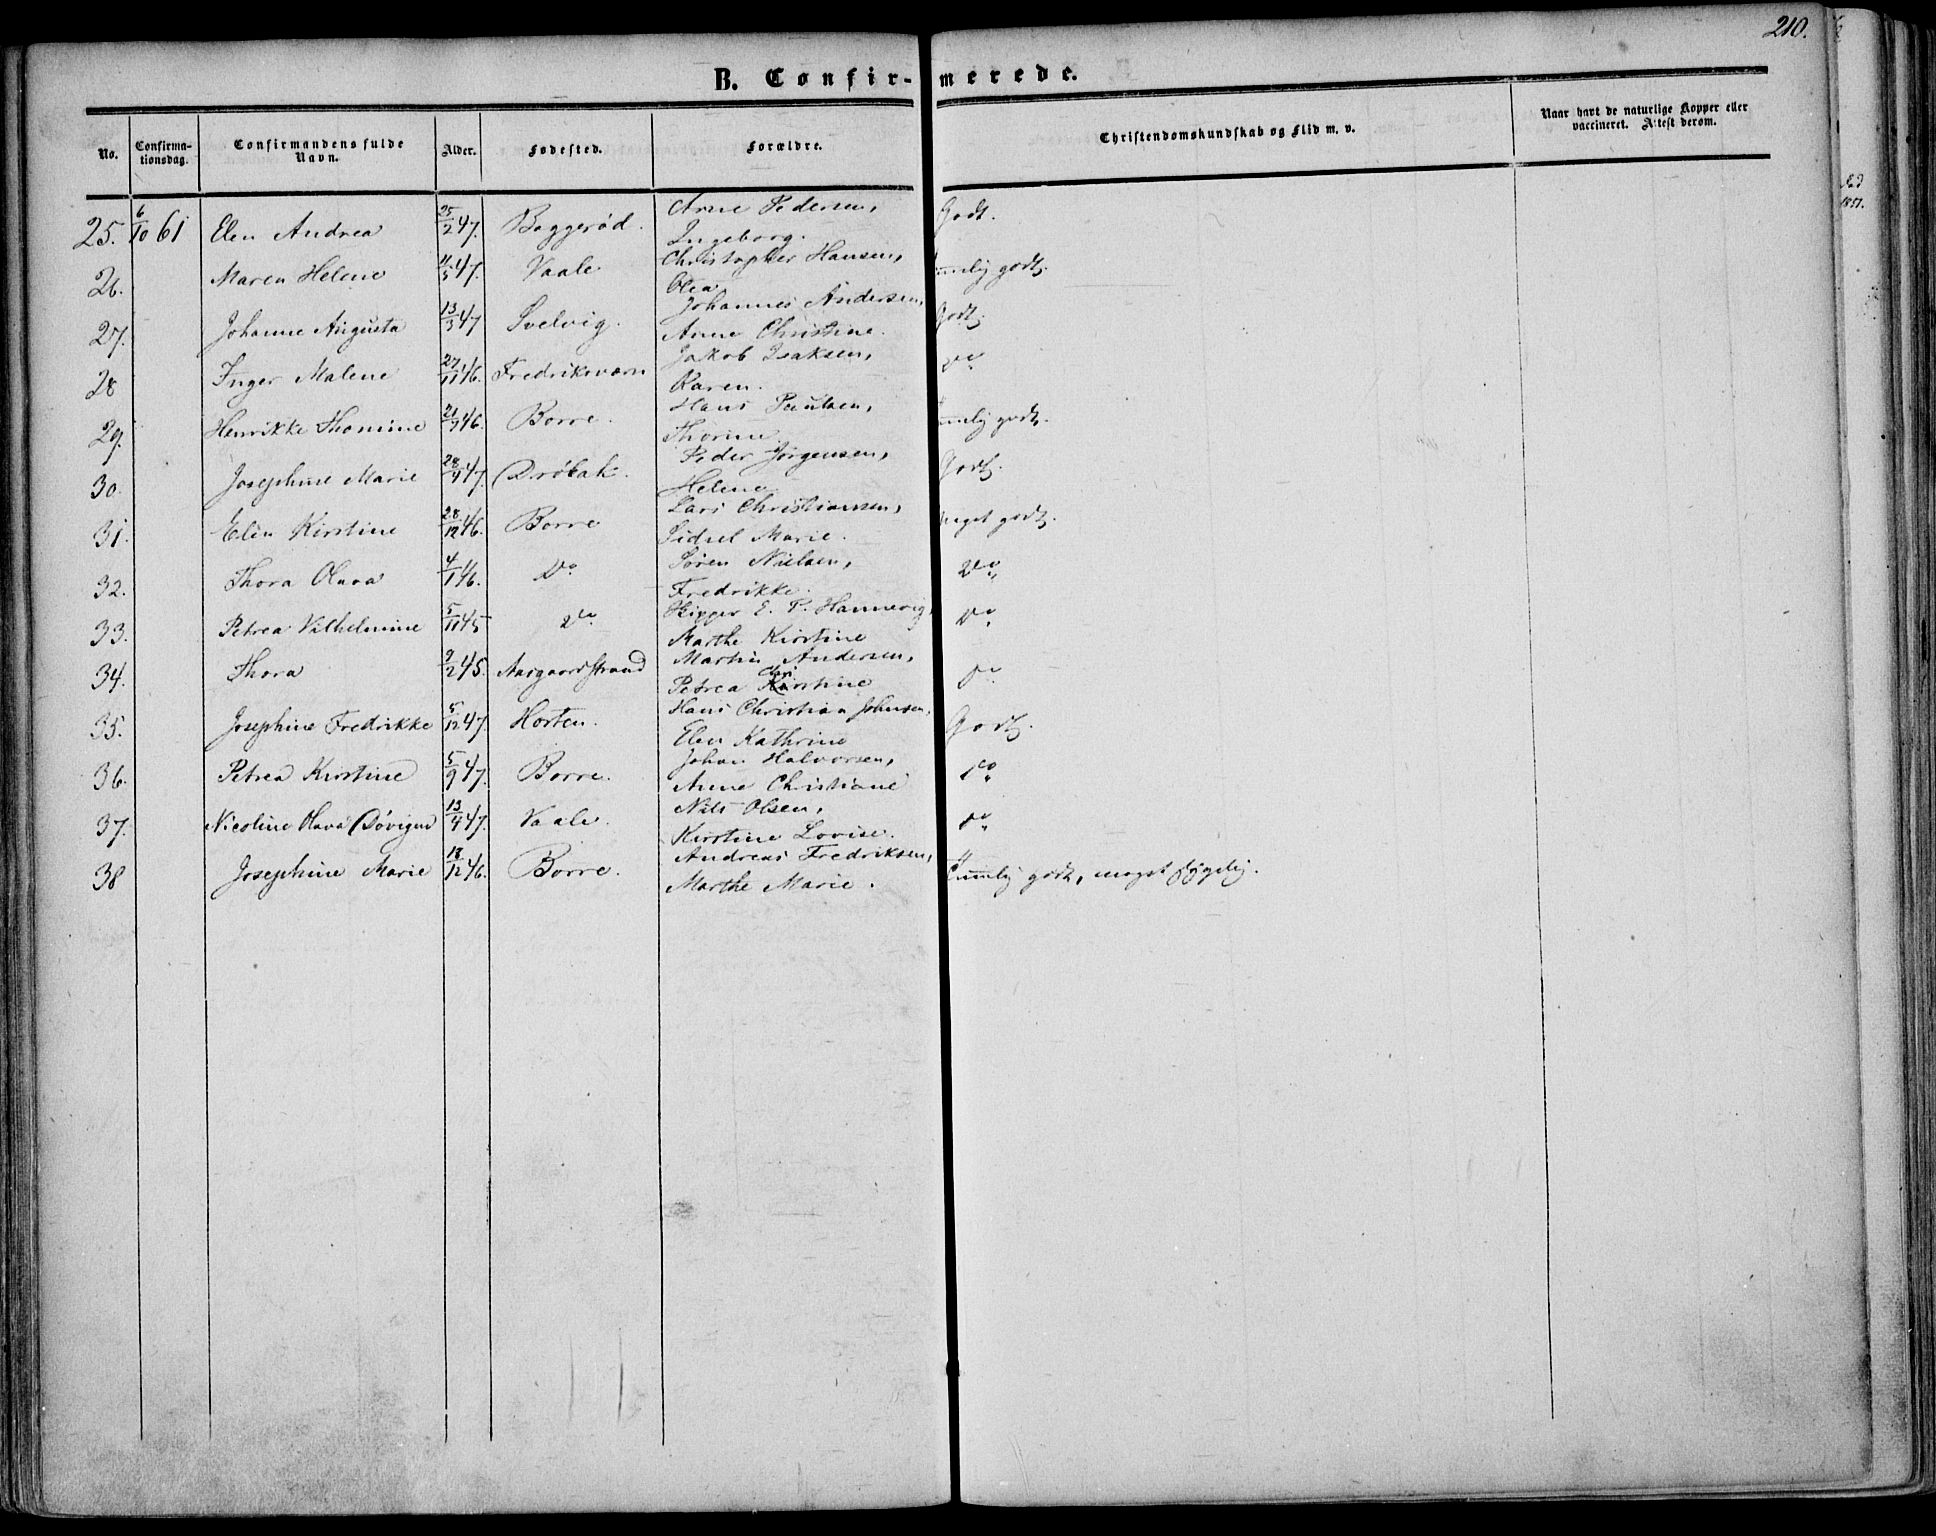 210.
B. Confirmerede.
No. Confirmationsdag. Confirmandens fulde Navn. Alder. Fødested. Forældre. Christendomskundskab og Flid m. v. Naar havt de naturlige Kopper eller vaccineret. Attest derom.
25. 6/10 61 Elen Andrea 25/2 47. Baggerød. Arne Pedersen, Godt.
Ingeborg.
26. Maren Helene 47. Vaale Christopher Hansen, godt.
Olea
27. Johanne Augusta 13/3 47 Svelvig. Johannes Andersen, Godt.
Anne Christine.
28 Inger Malene 27/11 46. Fredriksværn Jakob Isaksen, Do
Karen.
29. Henrikke Thomine 21/9 46. Borre. Hans Paulsen, godt.
Thorine
30. Josephine Marie 28/4 47. Drøbak. Peder Jørgensen, Godt.
Helene
31. Elen Kirstine 28/12 46. Borre Lars Christiansen, meget godt.
Sidsel Marie.
32. Thora Olava 4/1 46. Do Søren Nielsen, Do
Fredrikke.
33. Petrea Vilhelmine 5/11 45 Do Skipper E. P. Hannevig, Do
Marthe Kirstine
34. Thora 9/2 45. Aasgaardstrand Martin Andersen, Do
Petrea Kirstine
35. Josephine Fredrikke 5/12 47. Horten. Hans Christian Johnsen, Godt.
Elen Kathrine
36. Petrea Kirstine 5/9 47. Borre. Johan Halvorsen, Do
Anne Christiane
37. Nicoline Olava 13/4 47. Vaale. Nils Olsen, Do
Kirstine Lovise.
38 Josephine Marie 18/12 46. Borre. Andreas Fredriksen, Temmelig godt, meget
Marthe Marie.
1857.